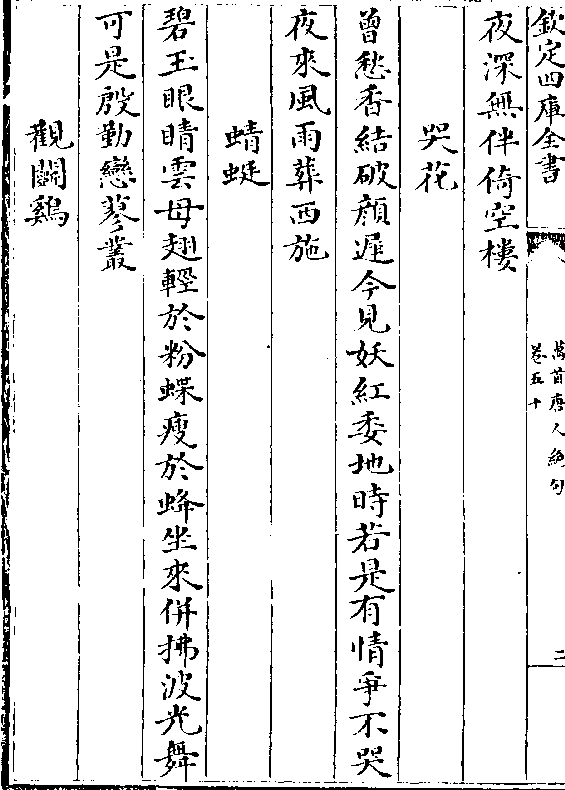 欽定四庫全書
萬首唐人絕句
卷五十
二
夜深無伴倚空樓
哭花
曾愁香結破顔遲今見妖紅委地時若是有情爭不哭
夜來風雨葬西施
蜻蜓
碧玉眼睛雲母翅輕於粉蝶瘦於蜂坐來併拂波光舞
可是殷勤戀蓼叢
觀鬬鷄